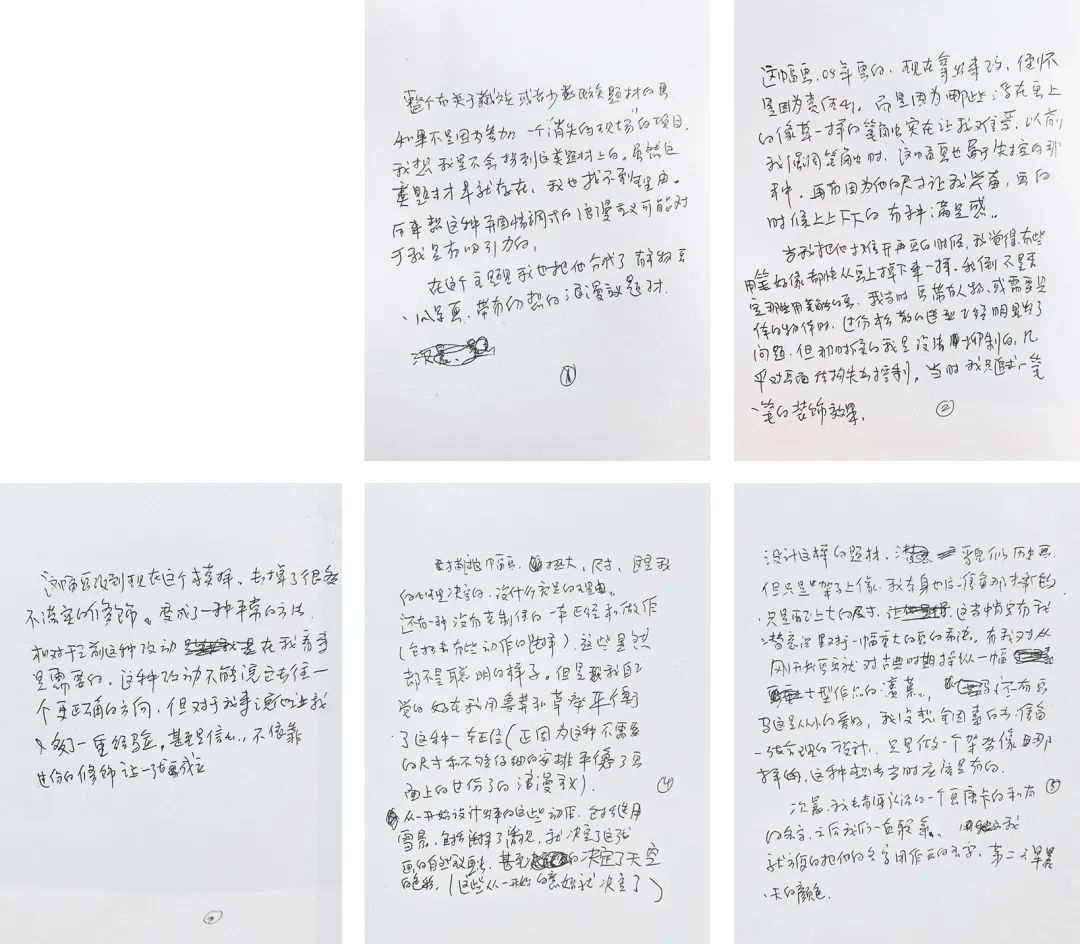 整个有关于藏族或者少数民族题材的画
如果不是因为参加一个"消失的现场"的项目,
我想我是不会接到这类题材上的。虽然这
类题材早就存在,我也找不到理由。
后来想这种异国情调式的浪漫主义可能对
于我是有吸引力的,
在这个主题里我也把他分成了有静物画
、风景画、带有幻想的浪漫主义题材.
①
这幅画,08年画的,现在拿出来改,倒不
是因为责任心。而是因为那些浮在画上
的像草一样的笔触实在让我难受,以前
我强调笔触时,这幅画也属于失控的那
种,再有因为他的尺寸让我兴奋,画的
时候上上下下的有种满足感。
当我把他打开再画的时候,我觉得有些
用笔好像都快从画上掉下来一样。我倒不是否
定那些用笔触的画。我当时画带有人物,或需要具
体的物体时,过份松散的造型已经明显出了
问题,但那时候的我是没法抑制的,几
乎对画面结构失去控制。当时我只追求一笔
一笔的装饰效果.
②
这幅画改到现在这个模样,去掉了很多
不肯定的修饰。变成了一种平常的方法
相对于之前这种改动在我看来
是需要的。这种改动不能说它去往一
个更正确的方向,但对于我来说他让我
又多了一重经验。甚至是信心,不依靠
过份的修饰让一张画成立
③
要挑选一幅画,扩大,尺寸,这是我
的心理决定的,没什么充足的理由。
还有一种没有克制住的一本正经和做作
(包括去有些动作的选择)。这些显然
都不是聪明的样子。但是我自己
觉的好在我用粗草和草率平衡
了这种一本正经(正因为这种不需要
的尺寸和不够仔细的安排平衡了画
面上的过份了的浪漫主义).
④
从一开始设计出来的这些动作,包括选用
雪景,包括选择了清晨,我决定了这张
画的自然主义画法,甚至决定了天空
的色彩,(这些从一开始的意好就决定了)
设计这样的题材,看似历史画
但只是架子上像,我本身也没准备那样搞
只是画上大的尺寸,这当中肯定有我
潜意识里对于一幅重大的画的看法。有我对从
刚开始画就对古典时期操纵一幅
大型作品的羡慕,还有画
马这是从小的爱好,我没想全因素的去准备
一场合理的设计,只是做一个架势像画那
样的,这种想法当时应该是有的.
次嘉,我去青海认识的一个画唐卡的朋友
的名字,之后我们一直联系,我
就方便的把他的名字用作画的名字,第二个早晨
天的颜色.
⑤